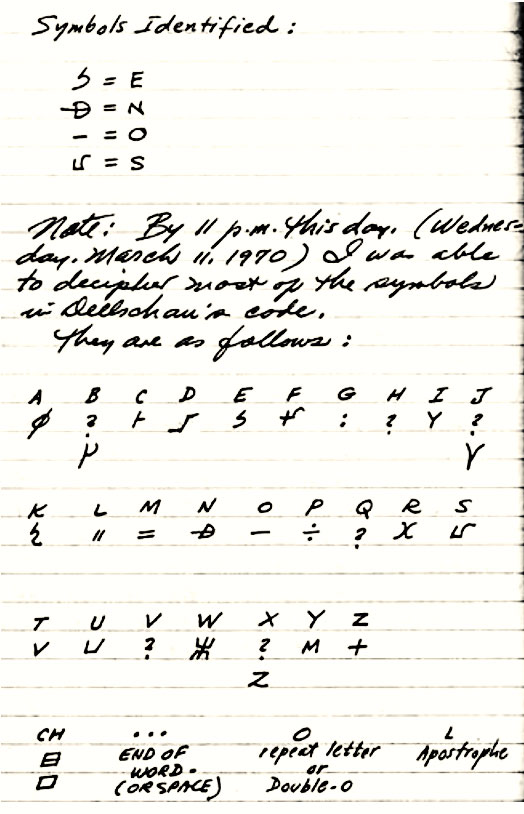 Symbols Identified:
ら = E
-Ð = N
— = O
Ⴑ = S
Note: By 11 p.m. this day. (Wednes=
day. March 11, 1970) I was able
to decipher most of the symbols
in Dellschau's code.
They are as follows:
A B C D E F G H I J
? : ? Y ?
K L M N O P Q R S
" = — ÷ ? X
T U V W X Y Z
V ? ? M +
Z
CH ... O L
END OF repeat letter Apostrophe
WORD - or
(OR SPACE) Double-O